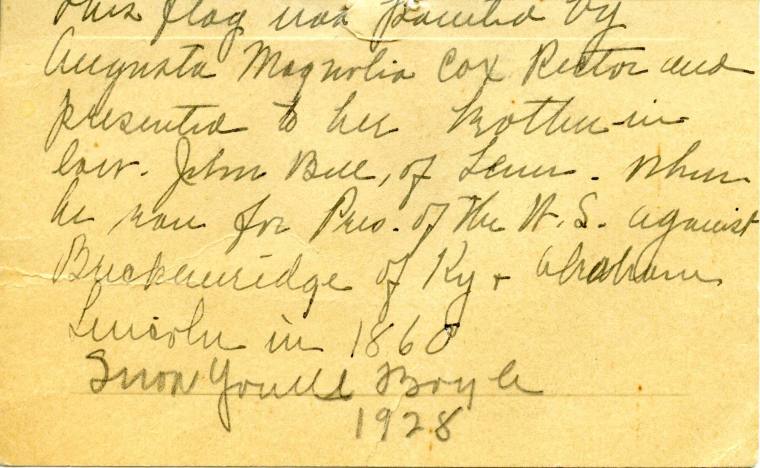 This flag was painted by
Augusta Magnolia Cox Rector and
presented to her Brother in
law. John Bell, of Tenn. when
he ran for Pres. of the U.S. against
Breckenridge of Ky & Abraham
Lincoln in 1860
Boyle
1928